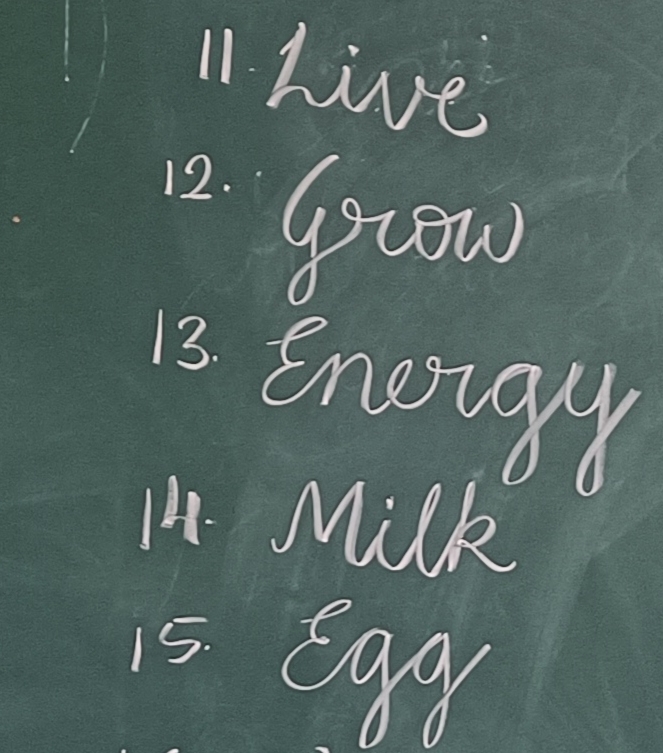 11. Live
12. Grow
13. Energy
14. Milk
15. Egg